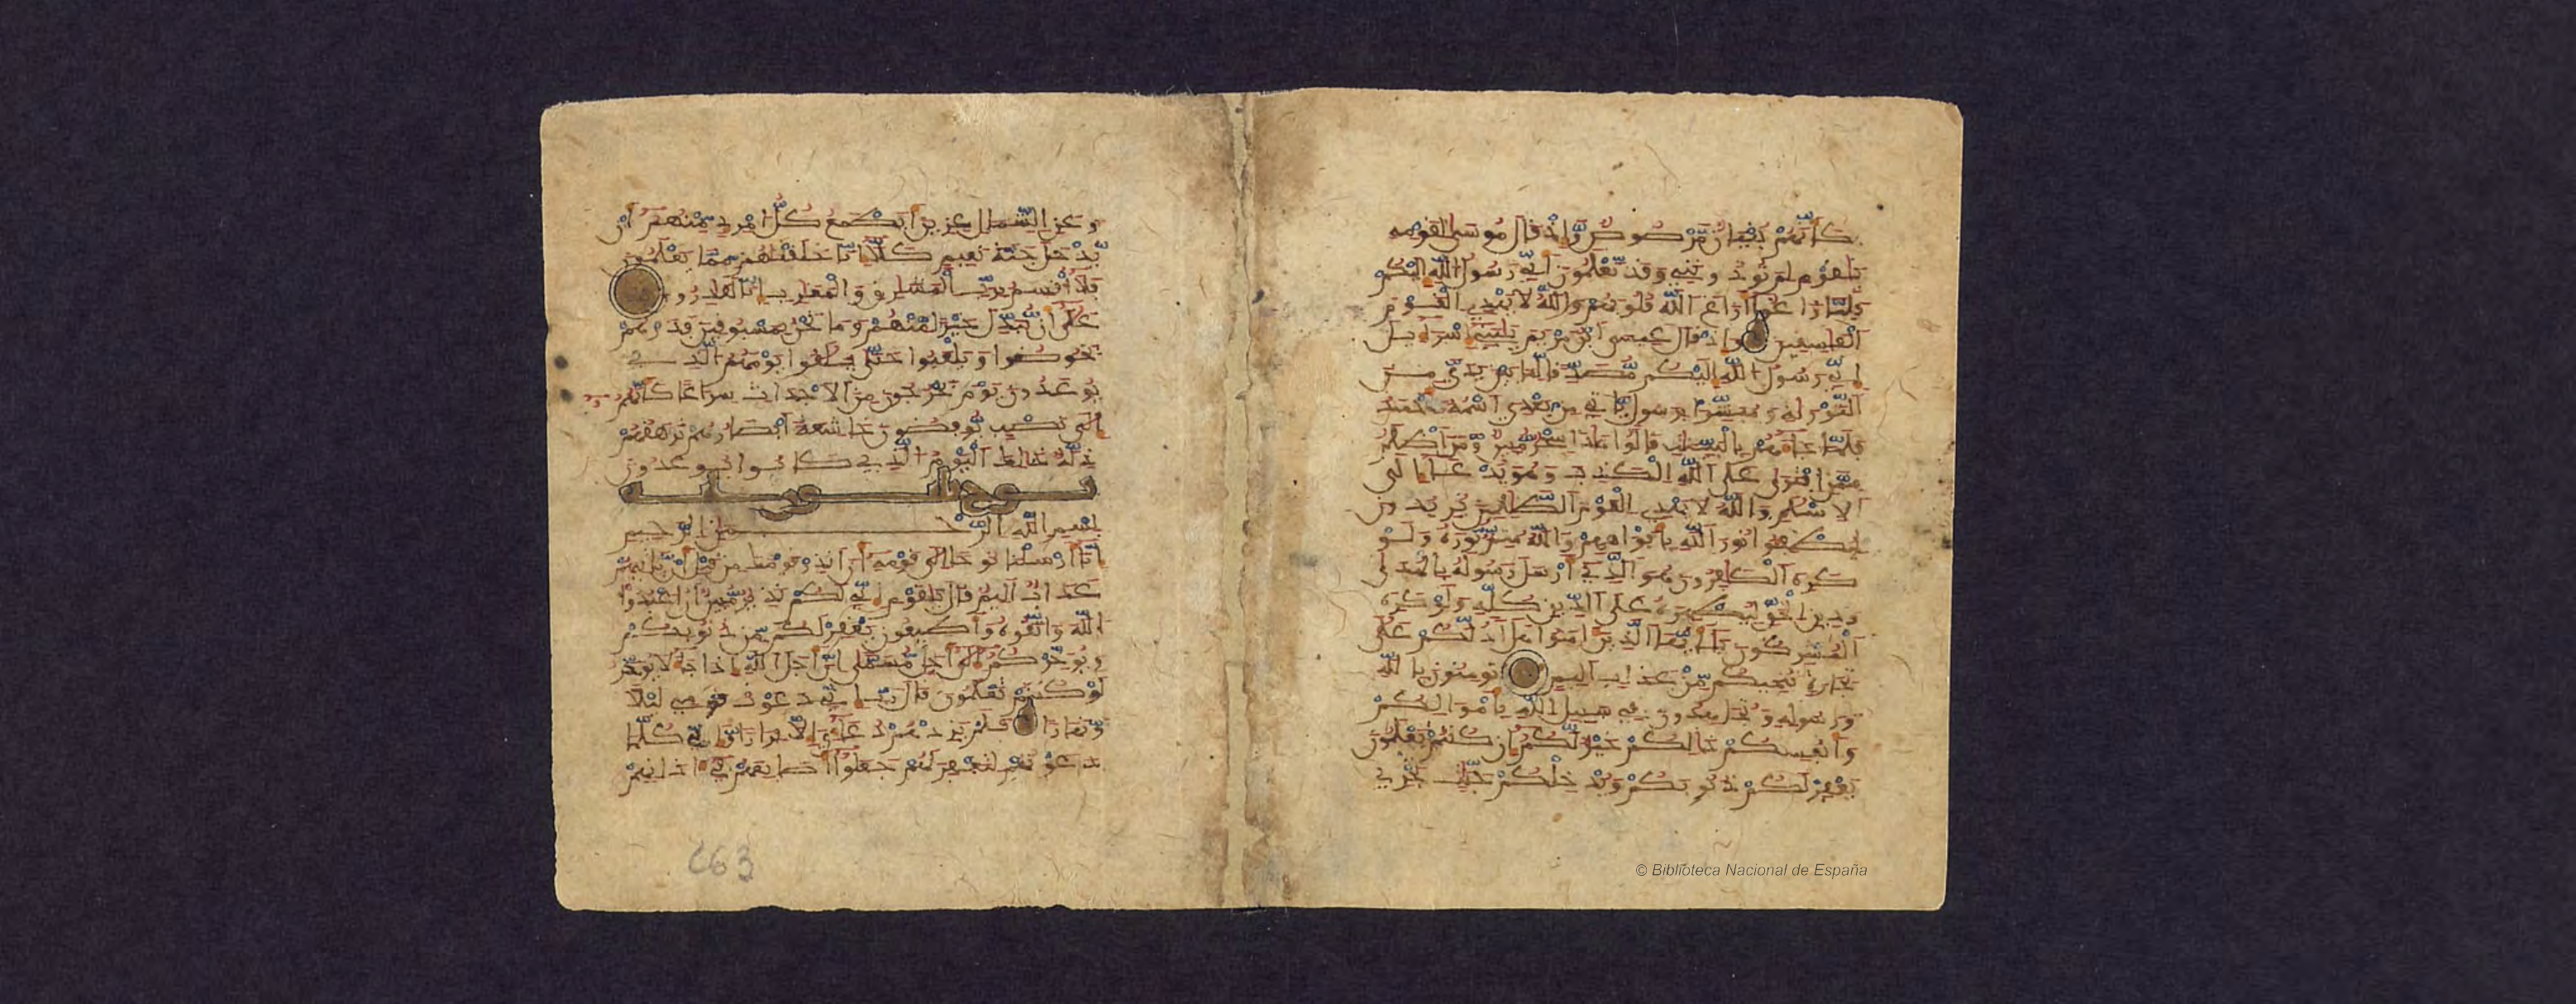 كأنهم بنيان مرصوص وإذ قال موسى لقومه
يقوم لم تؤذونني وقد تعلمون أني رسول الله إليكم
فلما زاغوا أزاغ الله قلوبهم والله لا يهدي القوم
الفسقين وإذ قال عيسى ابن مريم يبني إسراءيل
إني رسول الله إليكم مصدقا لما بين يدي من
التورية ومبشرا برسول ياتي من بعدي اسمه أحمد
فلما جاءهم بالبينت قالوا هذا سحر مبين ومن أظلم
ممن افترى على الله الكذب وهو يدعى إلى
الاسلم والله لا يهدي القوم الظلمين يريدون
ليطفئوا نور الله بأفواههم والله متم نوره ولو
كره الكفرون هو الذي أرسل رسوله بالهدى
ودين الحق ليظهره على الدين كله ولو كره
المشركون يأيها الذين ءامنوا هل أدلكم على
تجرة تنجيكم من عذاب أليم تومنون بالله
ورسوله وتجهدون في سبيل الله بأمولكم
وأنفسكم ذلكم خير لكم إن كنتم تعلمون
يغفر لكم ذنوبكم ويدخلكم جنت تجري
© Biblioteca Nacional de España
وعن الشمال عزين أيطمع كل امرئ منهم أن
يدخل جنة نعيم كلا إنا خلقنهم مما يعلمون
فلا أقسم برب المشرق والمغرب إنا لقدرون
على أن نبدل خيرا منهم وما نحن بمسبوقين فذرهم
يخوضوا ويلعبوا حتى يلقوا يومهم الذي
يوعدون يوم يخرجون من الأجداث سراعا كأنهم
إلى نصب يوفضون خشعة أبصرهم ترهقهم
ذلة ذلك اليوم الذي كانوا يوعدون
نوح
بسم الله الرحمن الرحيم
إنا أرسلنا نوحا إلى قومه أن أنذر قومك من قبل أن ياتيهم
عذاب أليم قال يقوم إني لكم نذير مبين أن اعبدوا
الله واتقوه وأطيعون يغفر لكم من ذنوبكم
ويؤخركم إلى أجل مسمى إن أجل الله إذا جاء لا يؤخر
لو كنتم تعلمون قال رب إني دعوت قومي ليلا
ونهارا فلم يزدهم دعاءي إلا فرارا وإني كلما
دعوتهم لتغفر لهم جعلوا أصبعهم في ءاذانهم
263